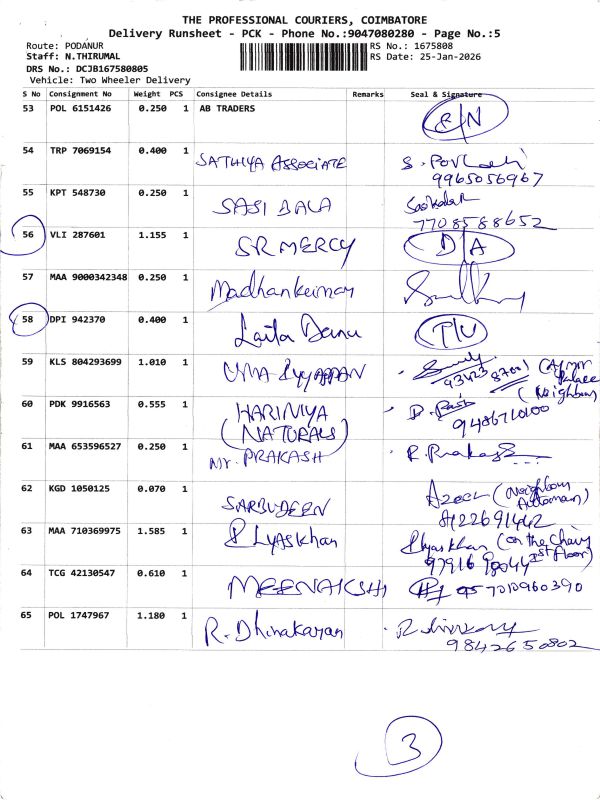 THE PROFESSIONAL COURIERS, COIMBATORE
Delivery Runsheet - PCK - Phone No.:9047080280 - Page No.:5
Route: PODANUR
Staff: N.THIRUMAL
DRS No.: DCJB167580805
Vehicle: Two Wheeler Delivery
RS No.: 1675808
RS Date: 25-Jan-2026
S No Consignment No Weight PCS Consignee Details Remarks Seal & Signature
53 POL 6151426 0.250 1 AB TRADERS R/N
54 TRP 7069154 0.400 1 SATHIYA ASSOCIATE
9965056967
55 KPT 548730 0.250 1 SASI BALA
7708588652
56 VLI 287601 1.155 1 SR MERCY D/A
57 MAA 9000342348 0.250 1 Madhankumar
58 DPI 942370 0.400 1 Laila Banu
59 KLS 804293699 1.010 1 UMA IYYAPPAN
Palace
(Neighbour)
60 PDK 9916563 0.555 1 HARINIYA
(NATURALS)
9486710100
61 MAA 653596527 0.250 1 Mr. PRAKASH R. Prakash
62 KGD 1050125 0.070 1 SARBUDEEN Azeer (Neighbour
8122691442
63 MAA 710369975 1.585 1 Ilyaskhan Ilyaskhan (on the Chair
1st Floor)
64 TCG 42130547 0.610 1 MEENAKSHI 7010960390
65 POL 1747967 1.180 1 R. Dhinakaran
9842650802
3